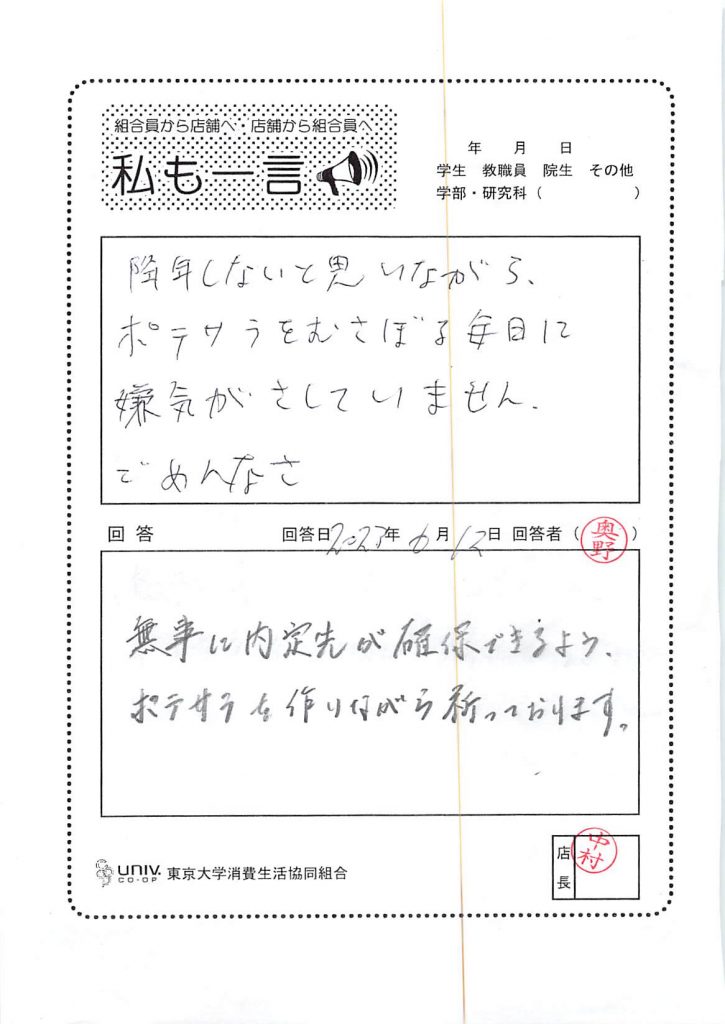 組合員から店舗へ・店舗から組合員へ
私も一言
年 月 日
学生 教職員 院生 その他
学部・研究科（ ）
降年しないと思いながら、
ポテサラをむさぼる毎日に
嫌気がさしていません.
ごめんなさ
回答 回答日2023年6月12日 回答者（奥野）
無事に内定先が確保できるよう、
ポテサラを作りながら祈っております。
店長 中村
UNIV. CO-OP 東京大学消費生活協同組合